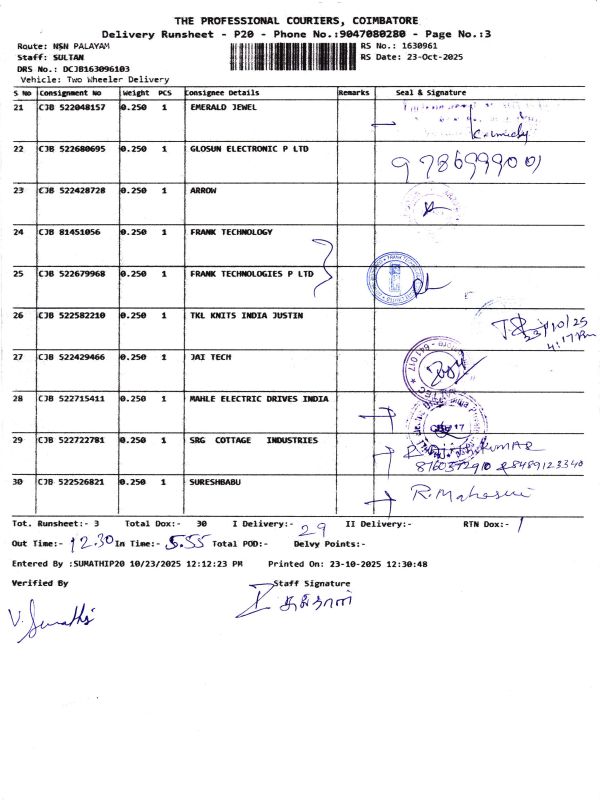 THE PROFESSIONAL COURIERS, COIMBATORE
Delivery Runsheet - P20 - Phone No.:9047080280 - Page No.:3
Route: NSN PALAYAM
RS No.: 1630961
Staff: SULTAN
RS Date: 23-Oct-2025
DRS No.: DCJB163096103
Vehicle: Two Wheeler Delivery
S No Consignment No Weight PCS Consignee Details Remarks Seal & Signature
21 CJB 522048157 0.250 1 EMERALD JEWEL
22 CJB 522680695 0.250 1 GLOSUN ELECTRONIC P LTD 9786999001
23 CJB 522428728 0.250 1 ARROW
24 CJB 81451056 0.250 1 FRANK TECHNOLOGY
25 CJB 522679968 0.250 1 FRANK TECHNOLOGIES P LTD
26 CJB 522582210 0.250 1 TKL KNITS INDIA JUSTIN
23/10/25
4:17Pm
27 CJB 522429466 0.250 1 JAI TECH
28 CJB 522715411 0.250 1 MAHLE ELECTRIC DRIVES INDIA
29 CJB 522722781 0.250 1 SRG COTTAGE INDUSTRIES
8760372910 & 8489123340
30 CJB 522526821 0.250 1 SURESHBABU R.Maheswri
Tot. Runsheet:- 3 Total Dox:- 30 I Delivery:- 29 II Delivery:- RTN Dox:- 1
Out Time:- 12.30 In Time:- 5.55 Total POD:- Delvy Points:-
Entered By :SUMATHIP20 10/23/2025 12:12:23 PM Printed On: 23-10-2025 12:30:48
Verified By Staff Signature
V. Sumathi சுல்தான்